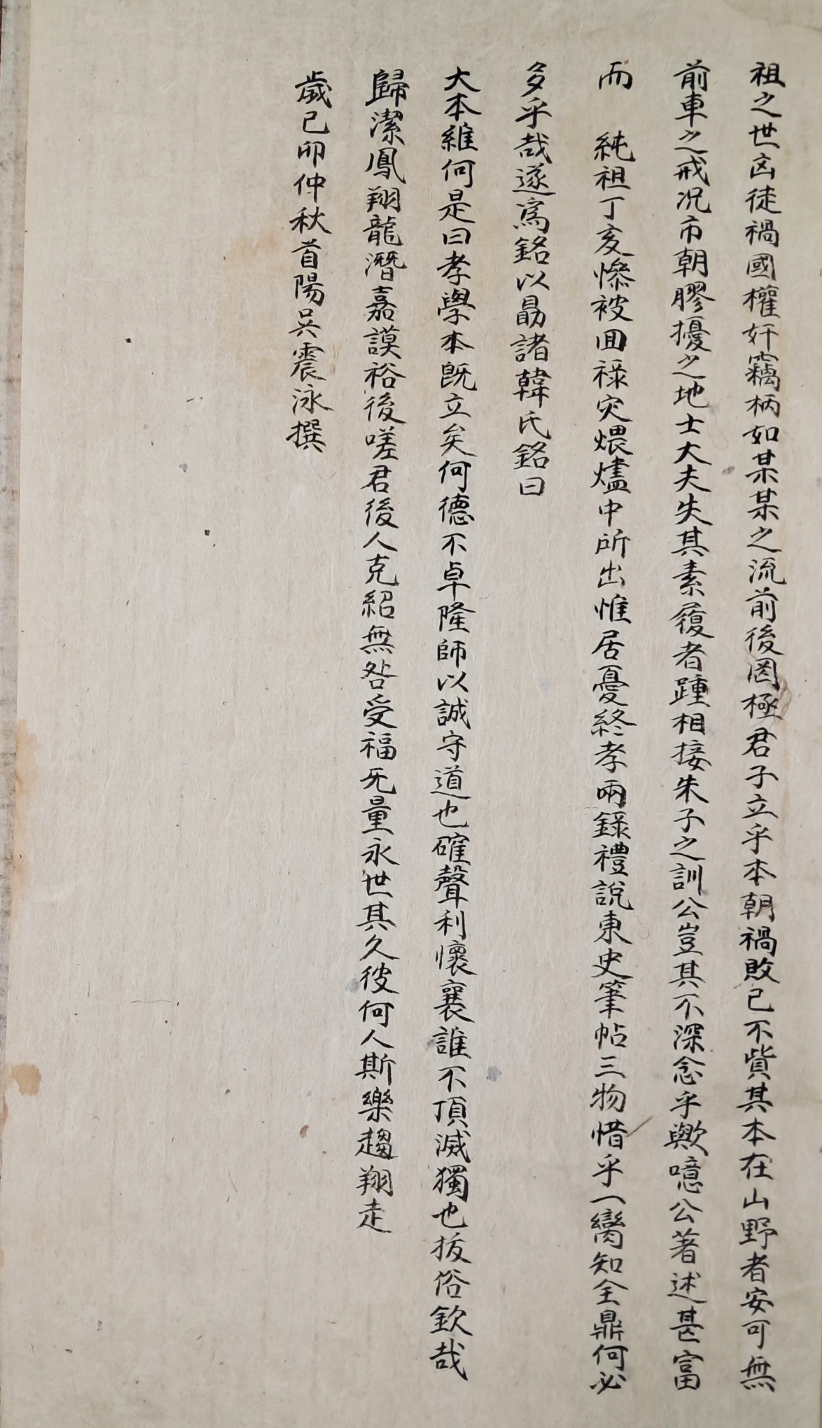 祖之世凶徒禍國權奸竊柄如某某之流前後罔極君子立乎本朝禍敗已不貲其本在山野者安可無
前車之戒况市朝膠擾之地士大夫失其素履者踵相接朱子之訓公豈其不深念乎歟噫公著述甚富
而　純祖丁亥慘被回祿灾煨燼中所出惟居憂終孝兩錄禮說東史筆帖三物惜乎一臠知全鼎何必
多乎哉遂爲銘以勗諸韓氏銘曰
大本維何是曰孝學本旣立矣何德不卓隆師以誠守道也確聲利懷襄誰不頂滅獨也拔俗欽哉
歸潔鳳翔龍潛嘉謨裕後嗟君後人克紹無咎受福无量永世其久彼何人斯樂趨翔走
歲己卯仲秋首陽吳震泳撰